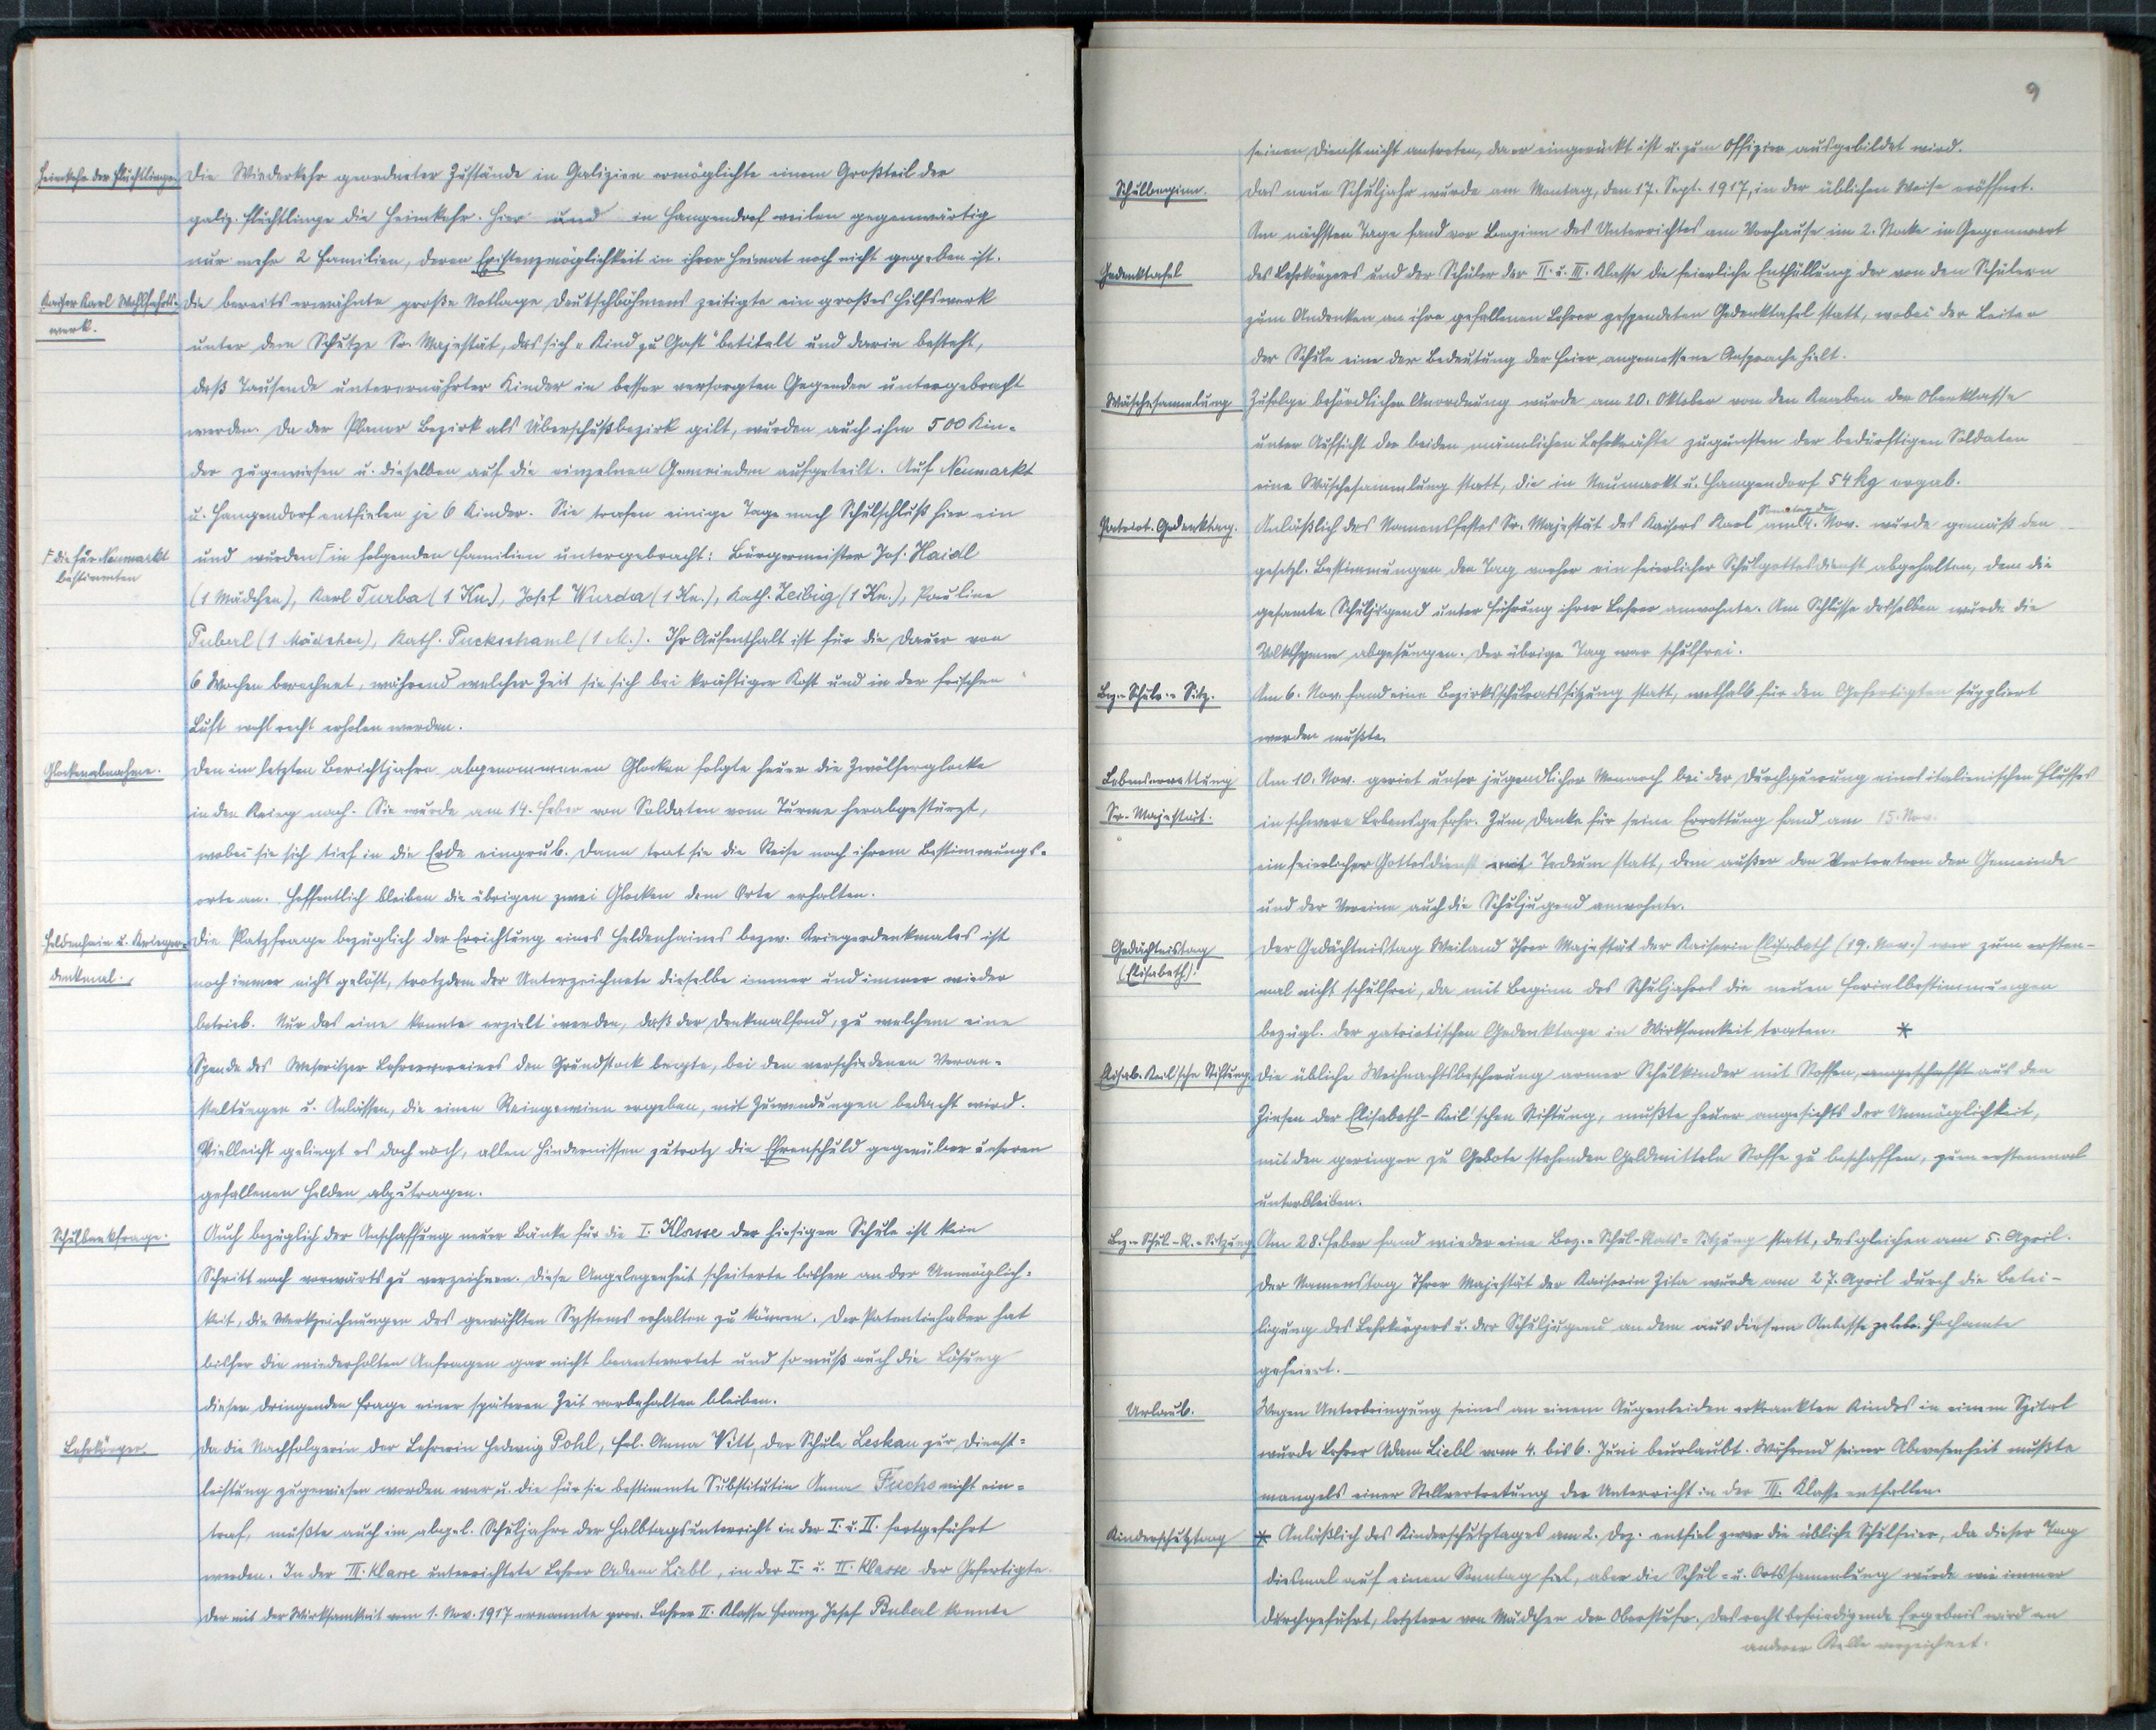 Heimkehr der Flüchtlinge. Die Wiederkehr geordneter Zustände in Galizien ermöglichte einem Großteil der
galiz. Flüchtlinge die Heimkehr. Hier und in Hangendorf weilen gegenwärtig
nur mehr 2 Familien, deren Existenzmöglichkeit in ihrer Heimat noch nicht gegeben ist.
Kaiser Karl Wohlfahrts- Die bereits erwähnte große Notlage Deutschböhmens zeitigte ein großes Hilfswerk
werk. unter dem Schutze Sr. Majestät, das sich „Kind zu Gast" betitelt und darin besteht,
daß Tausende unterernährter Kinder in besser versorgten Gegenden untergebracht
werden. Da der Planer Bezirk als Überschußbezirk gilt, wurden auch ihm 500 Kin-
der zugewiesen u. dieselben auf die einzelnen Gemeinden aufgeteilt. Auf Neumarkt
u. Hangendorf entfielen je 6 Kinder. Sie trafen einige Tage nach Schulschluß hier ein
Γ die für Neumarkt bestimmten
und wurden Γ in folgenden Familien untergebracht: Bürgermeister Jos. Haidl
(1 Mädchen), Karl Turba (1 Kn.), Josef Wurda (1 Kn.), Kath. Leibig (1 Kn.), Pauline
Buberl (1 Mädchen), Kath. Puckschaml (1 M.). Ihr Aufenthalt ist für die Dauer von
6 Wochen berechnet, während welcher Zeit sie sich bei kräftiger Kost und in der frischen
Luft wohl recht erholen werden.
Glockenabnahme. Den im letzten Berichtjahre abgenommenen Glocken folgte heuer die Zwölferglocke
in den Krieg nach. Sie wurde am 14. Feber von Soldaten vom Turme herabgestürzt,
wobei sie sich tief in die Erde eingrub. Dann trat sie die Reise nach ihrem Bestimmungs-
orte an. Hoffentlich bleiben die übrigen zwei Glocken dem Orte erhalten.
Heldenhain u. Krieger- Die Platzfrage bezüglich der Errichtung eines Heldenhaines bezw. Kriegerdenkmales ist
denkmal. noch immer nicht gelöst, trotzdem der Unterzeichnete dieselbe immer und immer wieder
betrieb. Nur das eine konnte erzielt werden, daß der Denkmalfond, zu welchem eine
Spende des Weseritzer Lehrervereines den Grundstock legte, bei den verschiedenen Veran-
staltungen u. Anlässen, die einen Reingewinn ergeben, mit Zuwendungen bedacht wird.
Vielleicht gelingt es doch noch, allen Hindernissen zutrotz die Ehrenschuld gegenüber unseren
gefallenen Helden abzutragen.
Schulbankfrage. Auch bezüglich der Anschaffung neuer Bänke für die I. Klasse der hiesigen Schule ist kein
Schritt nach vorwärts zu verzeichnen. Diese Angelegenheit scheiterte bisher an der Unmöglich-
keit, die Werkzeichnungen des gewählten Systems erhalten zu können. Der Patentinhaber hat
bisher die wiederholten Anfragen gar nicht beantwortet und so muß auch die Lösung
dieser dringenden Frage einer späteren Zeit vorbehalten bleiben.
Lehrkörper. Da die Nachfolgerin der Lehrerin Hedwig Pohl, Frl. Anna Witt, der Schule Leskau zur Dienst-
leistung zugewiesen worden war u. die für sie bestimmte Substitutin Anna Fuchs nicht ein-
traf, mußte auch im abgel. Schuljahre der Halbtagsunterricht in der I. u. II. fortgeführt
werden. In der III. Klasse unterrichtete Lehrer Adam Liebl, in der I. u. II. Klasse der Gefertigte.
Der mit der Wirksamkeit vom 1. Nov. 1917 ernannte prov. Lehrer II. Klasse Franz Josef Buberl konnte
9
seinen Dienst nicht antreten, da er eingerückt ist u. zum Offizier ausgebildet wird.
Schulbeginn. Das neue Schuljahr wurde am Montag, den 17. Sept. 1917, in der üblichen Weise eröffnet.
Am nächsten Tage fand vor Beginn des Unterrichtes am Vorhause im 2. Stocke in Gegenwart
Gedenktafel des Lehrkörpers und der Schüler der II. u. III. Klasse die feierliche Enthüllung der von den Schülern
zum Andenken an ihre gefallenen Lehrer gespendeten Gedenktafel statt, wobei der Leiter
der Schule eine der Bedeutung der Feier angemessene Ansprache hielt.
Wäschesammlung Zufolge behördlicher Anordnung wurde am 20. Oktober von den Knaben der Oberklasse
unter Aufsicht der beiden männlichen Lehrkräfte zugunsten der bedürftigen Soldaten
eine Wäschesammlung statt, die in Neumarkt u. Hangendorf 54 kg ergab.
Sonntag den
Patriot. Gedenktag. Anläßlich des Namensfestes Sr. Majestät des Kaisers Karl am 4. Nov. wurde gemäß den
gesetzl. Bestimmungen den Tag vorher ein feierlicher Schulgottesdienst abgehalten, dem die
gesamte Schuljugend unter Führung ihrer Lehrer anwohnte. Am Schlusse desselben wurde die
Volkshymne abgesungen. Der übrige Tag war schulfrei.
Bez.-Schulr.-Sitz. Am 6. Nov. fand eine Bezirksschulratssitzung statt, weshalb für den Gefertigten suppliert
werden mußte.
Lebenserrettung Am 10. Nov. geriet unser jugendlicher Monarch bei der Durchquerung eines italienischen Flusses
Sr. Majestät. in schwere Lebensgefahr. Zum Danke für seine Errettung fand am 15. Nov.
ein feierlicher Gottesdienst mit Tedeum statt, dem außer den Vertretern der Gemeinde
und der Vereine auch die Schuljugend anwohnte.
Gedächtnistag Der Gedächtnistag Weiland Ihrer Majestät der Kaiserin Elisabeth (19. Nov.) war zum ersten-
(Elisabeth). mal nicht schulfrei, da mit Beginn des Schuljahres die neuen Ferialbestimmungen
bezügl. der patriotischen Gedenktage in Wirksamkeit traten. *
Elisab. Keil'sche Stiftung. Die übliche Weihnachtsbescherung armer Schulkinder mit Stoffen, angeschafft aus den
Zinsen der Elisabeth-Keil'schen Stiftung, mußte heuer angesichts der Unmöglichkeit,
mit den geringen zu Gebote stehenden Geldmitteln Stoffe zu beschaffen, zum erstenmal
unterbleiben.
Bez.-Schul-R.-Sitzung. Am 28. Feber fand wieder eine Bez.-Schul-Rats-Sitzung statt, desgleichen am 5. April.
Der Namenstag Ihrer Majestät der Kaiserin Zita wurde am 27. April durch die Betei-
ligung des Lehrkörpers u. der Schuljugend an dem aus diesem Anlasse zelebr. Hochamte
gefeiert.
Urlaub. Wegen Unterbringung seines an einem Augenleiden erkrankten Kindes in einem Spital
wurde Lehrer Adam Liebl vom 4. bis 6. Juni beurlaubt. Während seiner Abwesenheit mußte
mangels einer Stellvertretung der Unterricht in der III. Klasse entfallen.
Kinderschutztag * Anläßlich des Kinderschutztages am 2. Dez. entfiel zwar die übliche Schulfeier, da dieser Tag
diesmal auf einen Sonntag fiel, aber die Schul- u. Ortssammlung wurde wie immer
durchgeführt, letztere von Mädchen der Oberstufe. Das recht befriedigende Ergebnis wird an
anderer Stelle verzeichnet.